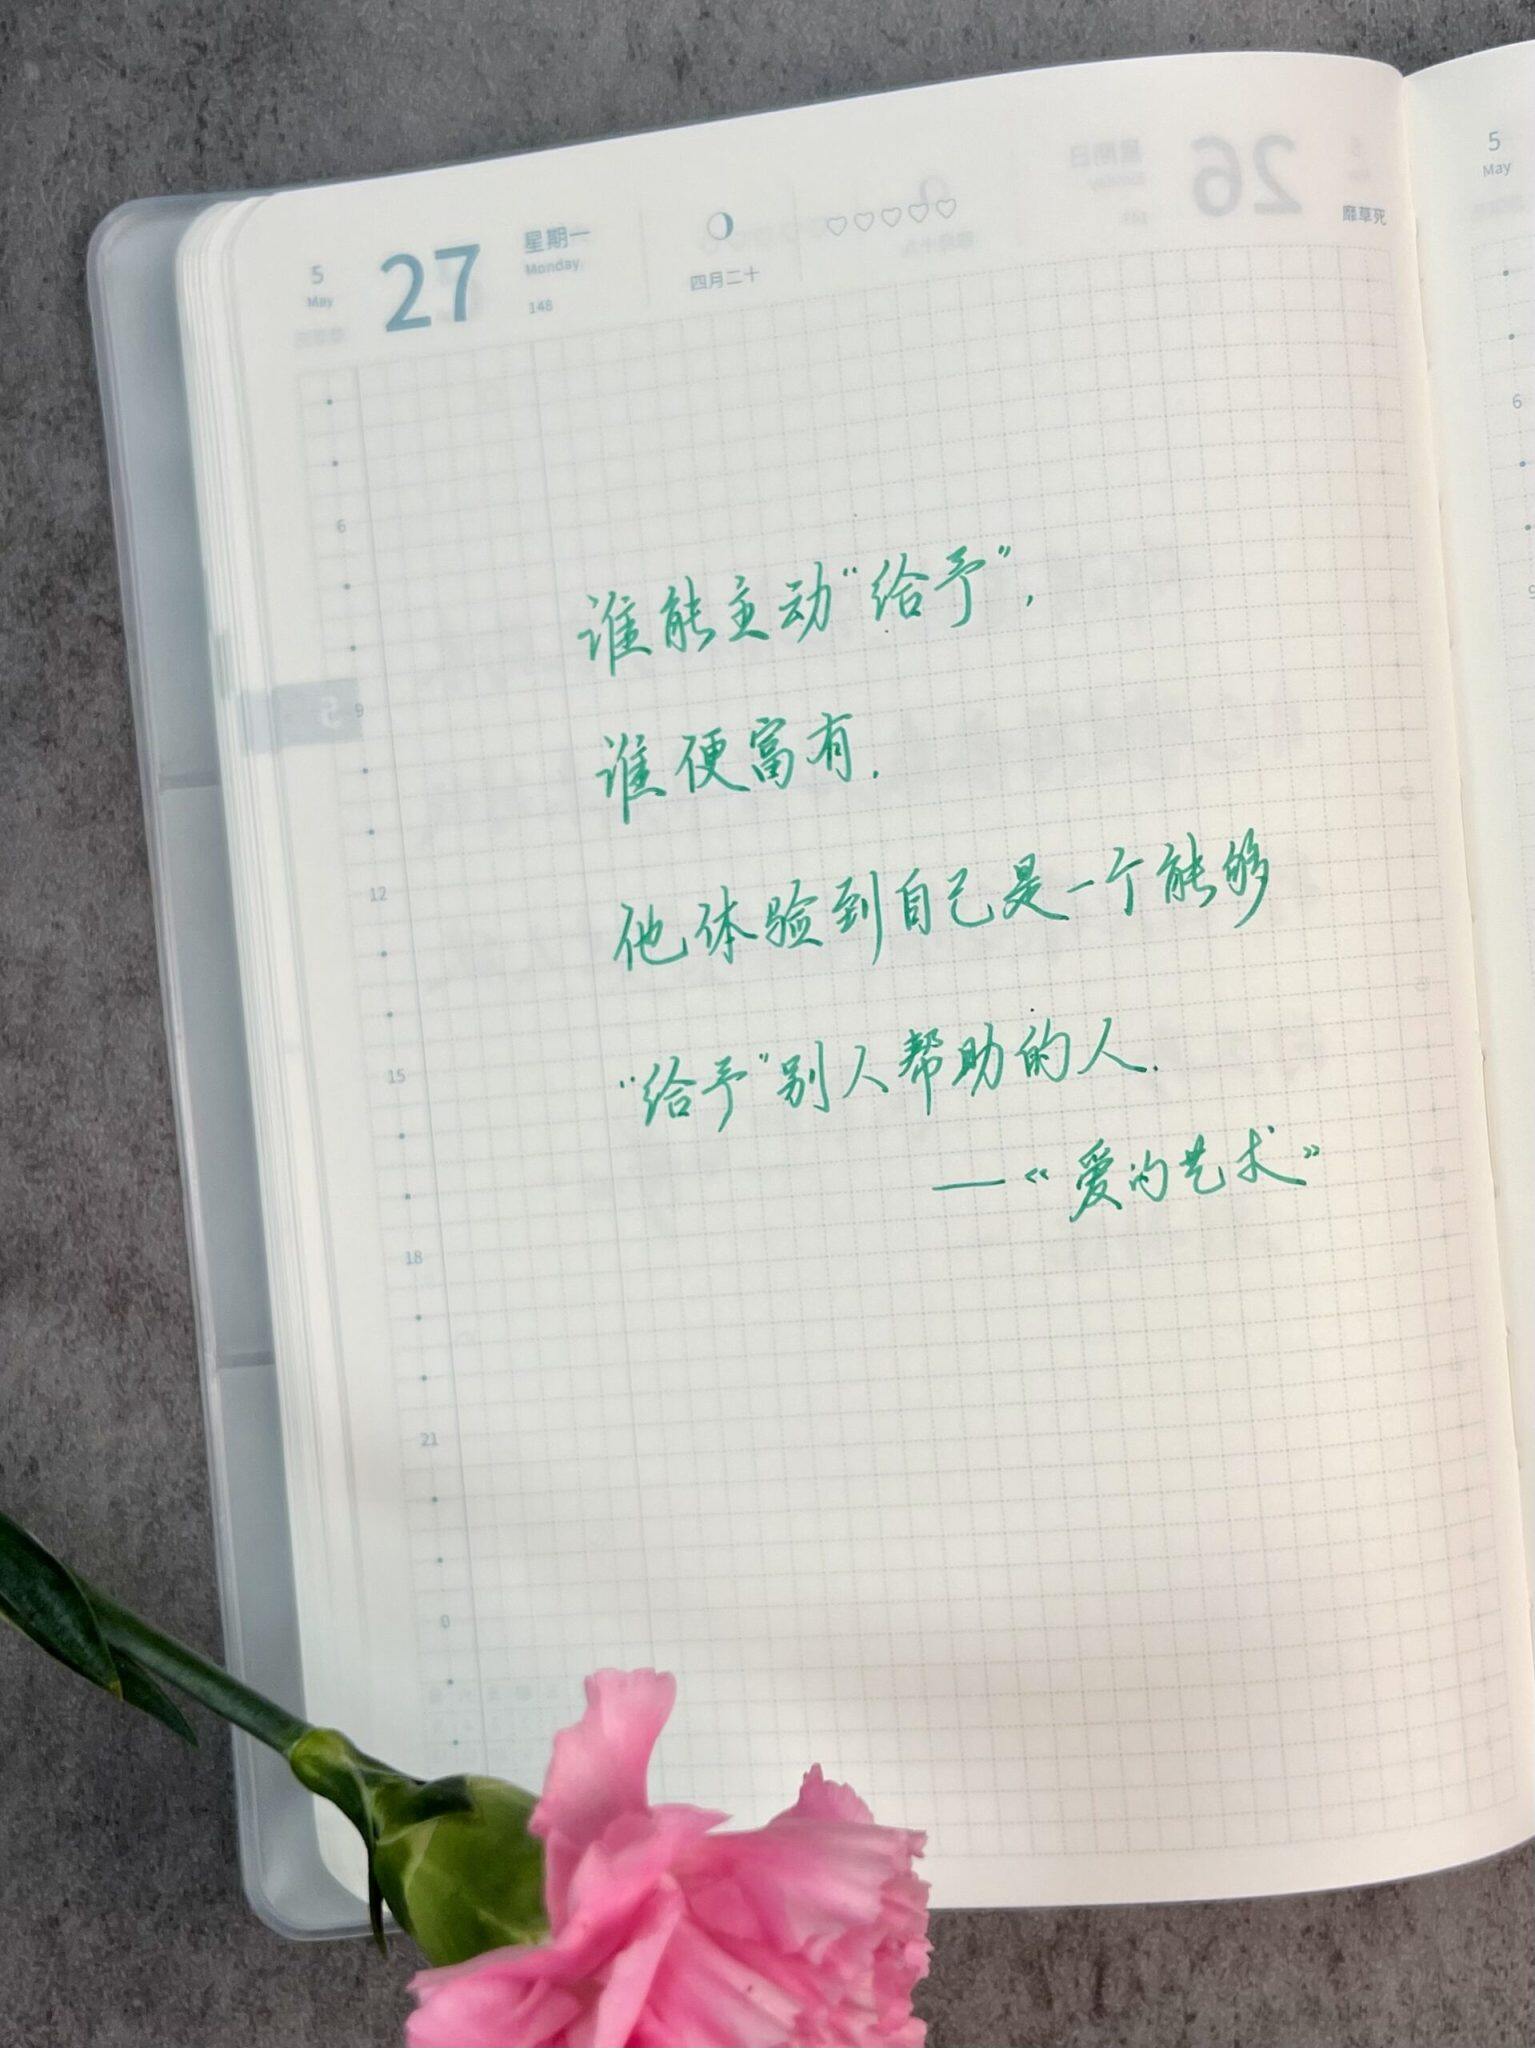 5
May
27
星期一
Monday
148
四月二十
26
靡草死
5
May
6
9
12
15
18
21
0
5
6
9
谁能主动“给予”,
谁便富有.
他体验到自己是一个能够
“给予”别人帮助的人.
—《爱的艺术》